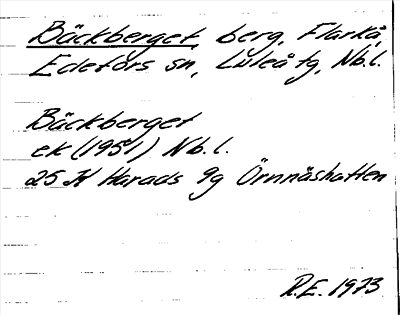 Bäckberget, berg, Flarkå,
Edefors sn, Luleå tg, Nb.l.
Bäckberget
ek (1951) Nb.l.
25 K Harads 9g Örnnäshatten
R.E. 1973